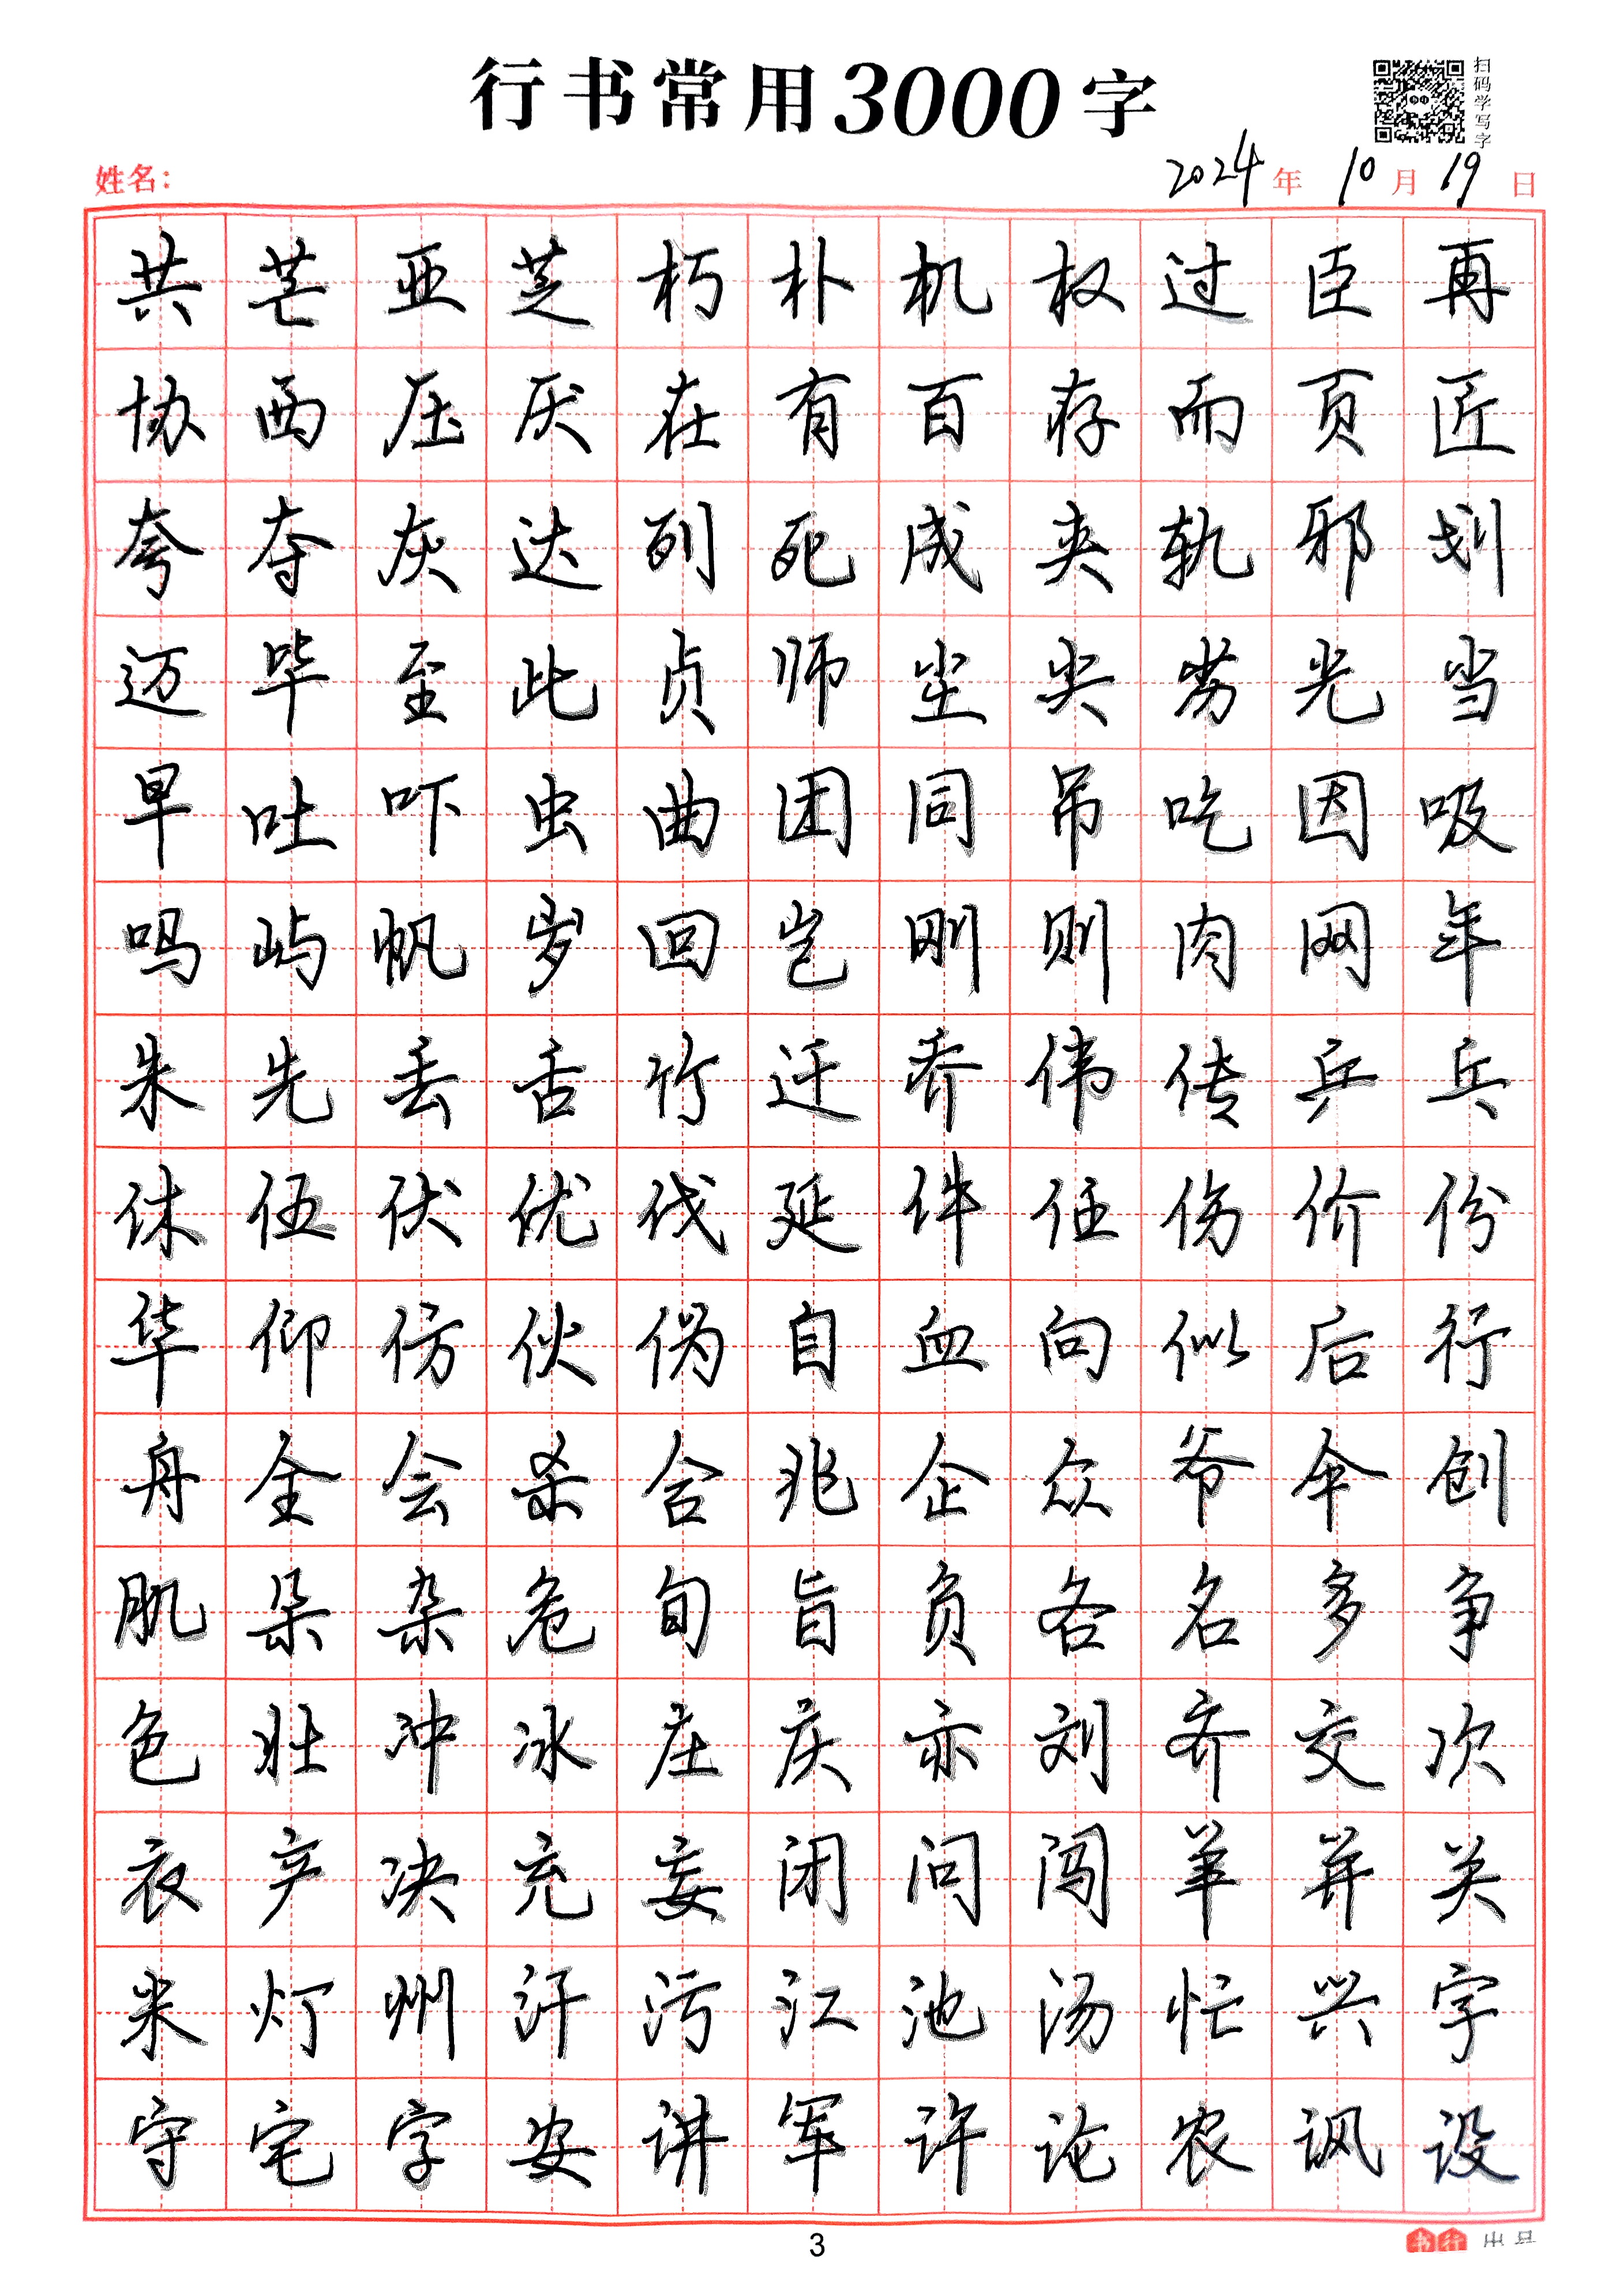 行书常用3000字
扫码学写字
姓名: 2024年10月19日
共芒亚芝朽朴机权过臣再
协西压厌在有百存而页匠
夸夺灰达列死成夹轨邪划
迈毕至此贞师尘尖劣光当
早吐吓虫曲团同吊吃因吸
吗屿帆岁回岂刚则肉网年
朱先丢舌竹迁乔伟传乒乓
休伍伏优伐延件任伤价份
华仰仿伙伪自血向似后行
舟全会杀合兆企众爷伞创
肌朵杂危旬旨负各名多争
色壮冲冰庄庆亦刘齐交次
衣产决充妄闭问闯羊并关
米灯州汗污江池汤忙兴宇
守宅字安讲军许论农讽设
3
书行